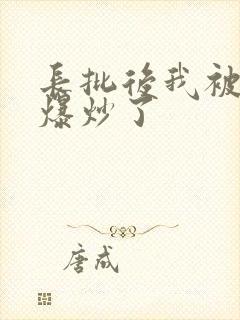 長批後我被
爆炒了
唐成